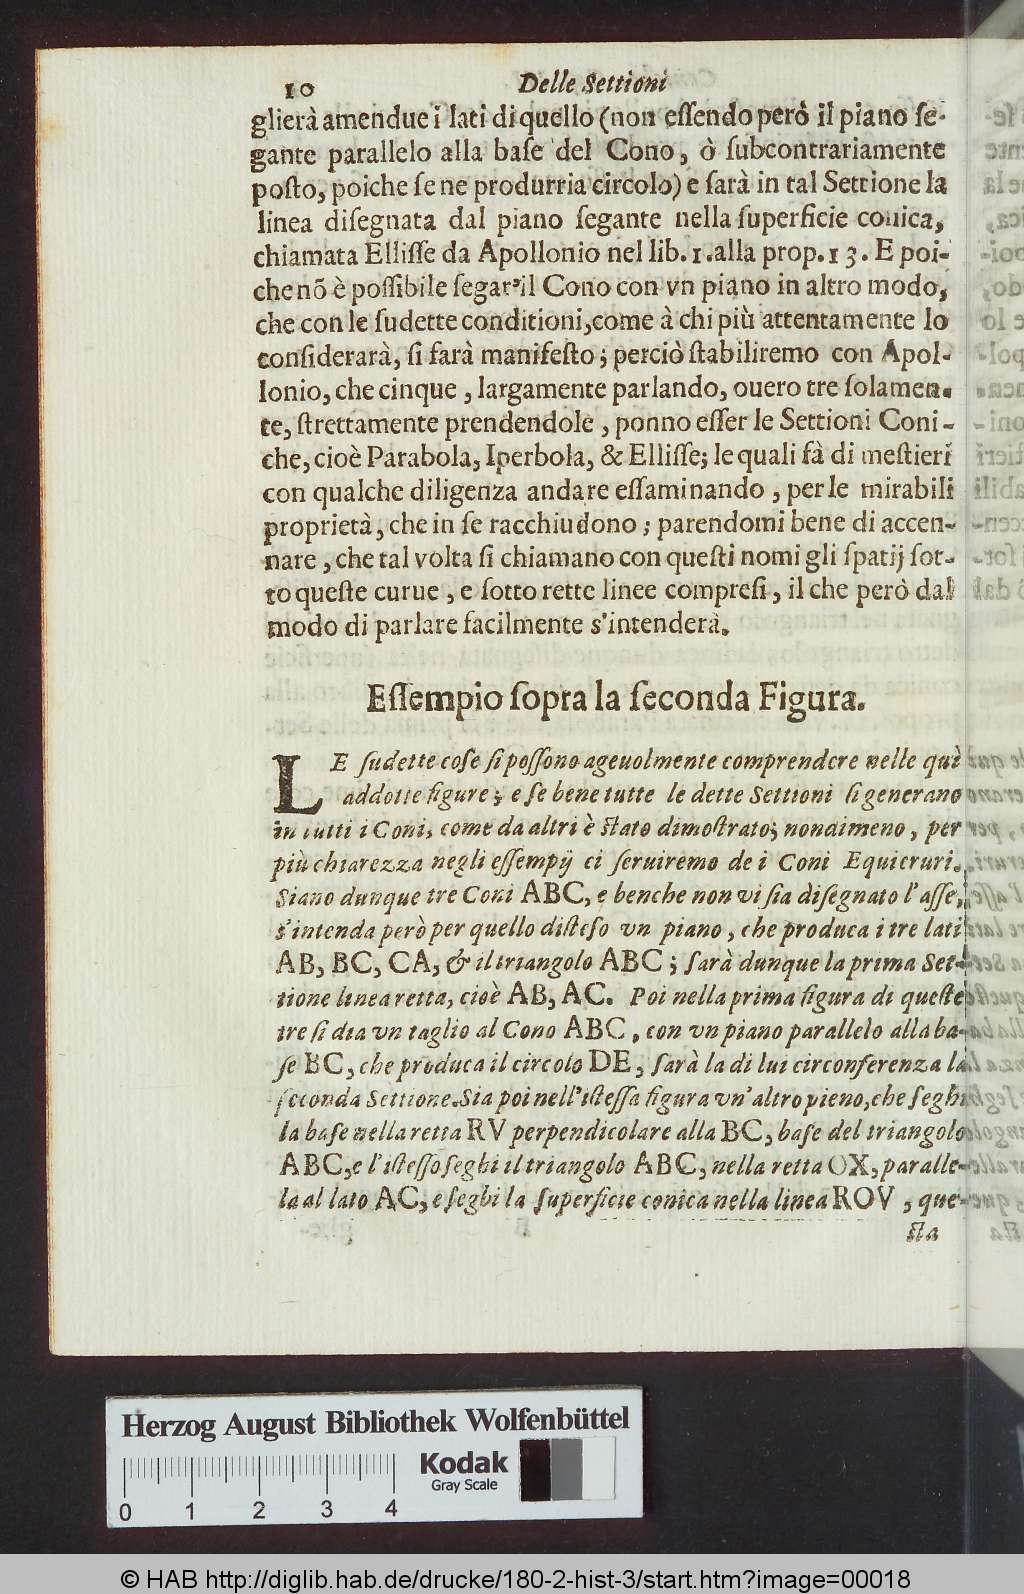 10 Delle Settioni
glierà amendue i lati di quello (non eſſendo però il piano ſe-
gante parallelo alla baſe del Cono, ò ſubcontrariamente
poſto, poiche ſe ne produrria circolo) e ſarà in tal Settione la
linea diſegnata dal piano ſegante nella ſuperficie conica,
chiamata Elliſſe da Apollonio nel lib. 1. alla prop. 13. E poi-
che nõ è poſſibile ſegar'il Cono con vn piano in altro modo,
che con le ſudette conditioni, come à chi più attentamente lo
conſiderarà, ſi farà manifeſto; perciò ſtabiliremo con Apol-
lonio, che cinque, largamente parlando, ouero tre ſolamen-
te, ſtrettamente prendendole, ponno eſſer le Settioni Coni-
che, cioè Parabola, Iperbola, & Elliſſe; le quali fà di meſtieri
con qualche diligenza andare eſſaminando, per le mirabili
proprietà, che in ſe racchiudono; parendomi bene di accen-
nare, che tal volta ſi chiamano con queſti nomi gli ſpatij ſot-
to queſte curue, e ſotto rette linee compreſi, il che però dal
modo di parlare facilmente s'intenderà.
Eſſempio ſopra la ſeconda Figura.
LE ſudette coſe ſi poſſono ageuolmente comprendere nelle quì
addotte figure; e ſe bene tutte le dette Settioni ſi generano
in tutti i Coni, come da altri è ſtato dimoſtrato; nondimeno, per
più chiarezza negli eſſempij ci ſeruiremo de i Coni Equicruri.
Siano dunque tre Coni ABC, e benche non vi ſia diſegnato l'aſſe,
s'intenda però per quello diſteſo vn piano, che produca i tre lati
AB, BC, CA, & il triangolo ABC; ſarà dunque la prima Set-
tione linea retta, cioè AB, AC. Poi nella prima figura di queſte
tre ſi dia vn taglio al Cono ABC, con vn piano parallelo alla ba-
ſe BC, che produca il circolo DE, ſarà la di lui circonferenza la
ſeconda Settione. Sia poi nell'iſteſſa figura vn'altro pieno, che ſeghi
la baſe nella retta RV perpendicolare alla BC, baſe del triangolo
ABC, e l'iſteſſo ſeghi il triangolo ABC, nella retta OX, paralle-
la al lato AC, e ſeghi la ſuperficie conica nella linea ROV, que-
ſta
Herzog August Bibliothek Wolfenbüttel
Kodak
Gray Scale
0 1 2 3 4
© HAB http://diglib.hab.de/drucke/180-2-hist-3/start.htm?image=00018